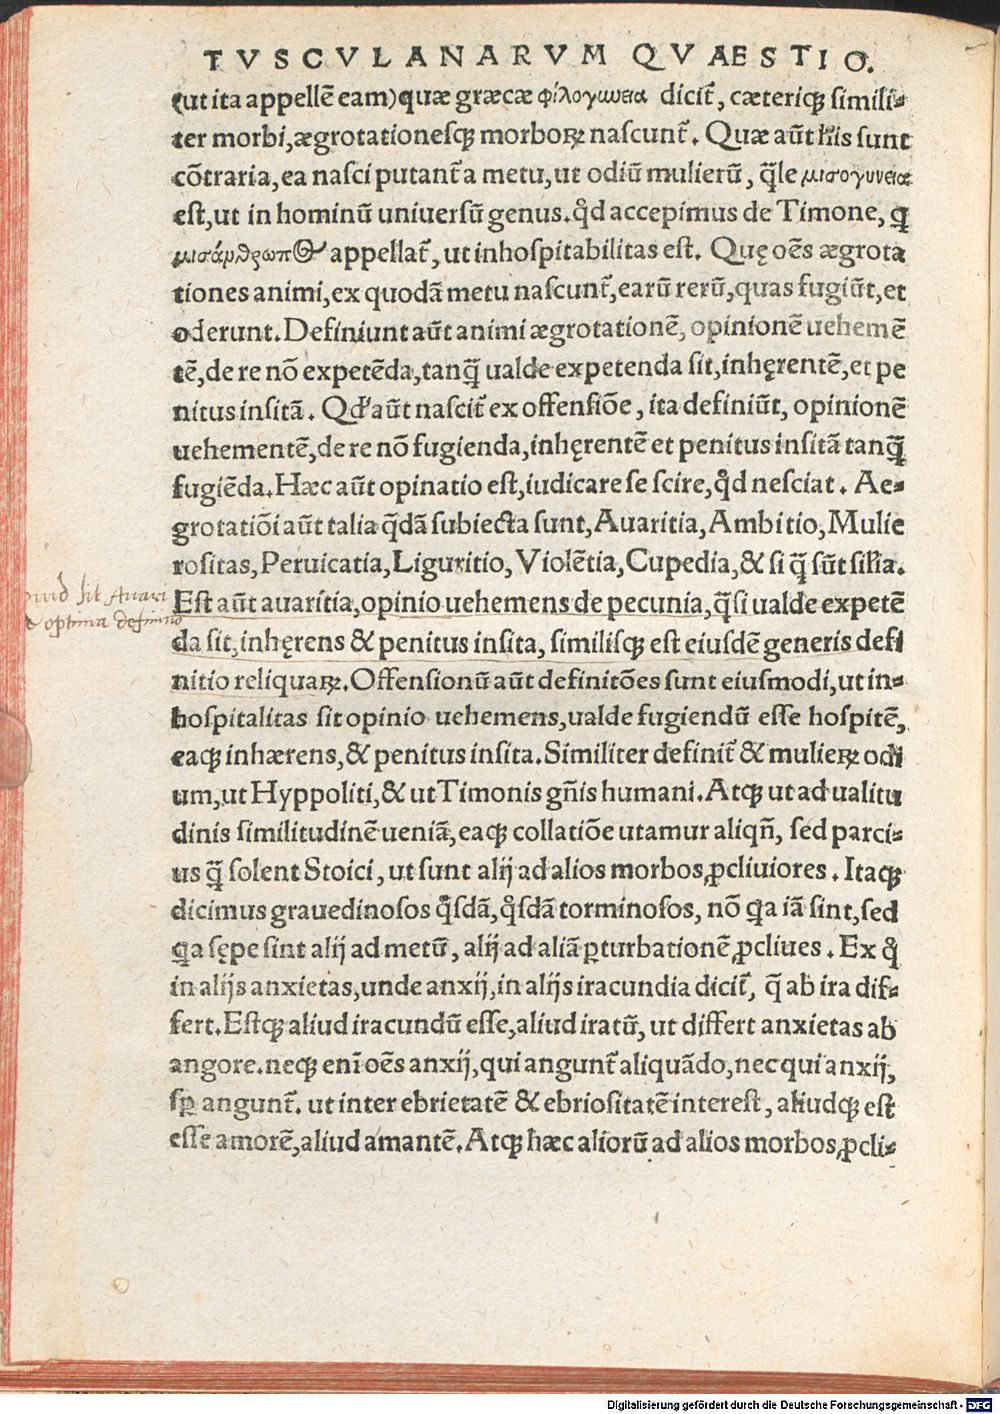 TVSCVLANARVM QVAESTIO.
(ut ita appellē eam) quæ græcæ φίλογωνεια dicit᷑, cæteriqꝫ simili-
ter morbi, ægrotationesqꝫ morboꝝ nascunt᷑. Quæ aūt his sunt
cōtraria, ea nasci putant᷑ a metu, ut odiū mulierū, q̄le μισογυνεια
est, ut in hominū uniuersū genus. qd̓ accepimus de Timone, ꝗ
μισάνθρωπος appellat᷑, ut inhospitabilitas est. Quę oēs ægrota
tiones animi, ex quodā metu nascunt᷑, earū rerū, quas fugiūt, et
oderunt. Definiunt aūt animi ægrotationē, opinionē uehemē
tē, de re nō expetēda, tanꝗ̄ ualde expetenda sit, inhęrentē, et pe
nitus insitā. Qd̓ aūt nascit᷑ ex offensiōe, ita definiūt, opinionē
uehementē, de re nō fugienda, inhęrentē et penitus insitā tanꝗ̄
fugiēda. Hæc aūt opinatio est, iudicare se scire, qd̓ nesciat. Ae-
grotatiōi aūt talia q̄dā subiecta sunt, Auaritia, Ambitio, Mulie
rositas, Peruicatia, Liguritio, Violētia, Cupedia, & si ꝗ̄ sūt sil̓ia.
Est aūt auaritia, opinio uehemens de pecunia, q̄si ualde expetē
da sit, inhęrens & penitus insita, similisqꝫ est eiusdē generis defi
nitio reliquaꝝ. Offensionū aūt definitōes sunt eiusmodi, ut in-
hospitalitas sit opinio uehemens, ualde fugiendū esse hospitē,
eaqꝫ inhærens, & penitus insita. Similiter definit᷑ & mulieꝝ odi
um, ut Hyppoliti, & ut Timonis gn̄is humani. Atqꝫ ut ad ualitu
dinis similitudinē ueniā, eaqꝫ collatiōe utamur aliqn̄, sed parci-
us ꝗ̄ solent Stoici, ut sunt alij ad alios morbos ꝓcliuiores. Itaqꝫ
dicimus grauedinosos qͦsdā, qͦsdā torminosos, nō ꝗa iā sint, sed
ꝗa sępe sint alij ad metū, alij ad aliā ꝑturbationē ꝓcliues. Ex qͦ
in alijs anxietas, unde anxij, in alijs iracundia dicit᷑, q̄ ab ira dif-
fert. Estqꝫ aliud iracundū esse, aliud iratū, ut differt anxietas ab
angore. neqꝫ enī oēs anxij, qui angunt᷑ aliquādo, nec qui anxij,
sꝑ angunt᷑. ut inter ebrietatē & ebriositatē interest, aliudqꝫ est
esse amorē, aliud amantē. Atqꝫ hæc aliorū ad alios morbos ꝓcli-
sit Avari
optima definitio
Digitalisierung gefördert durch die Deutsche Forschungsgemeinschaft - DFG